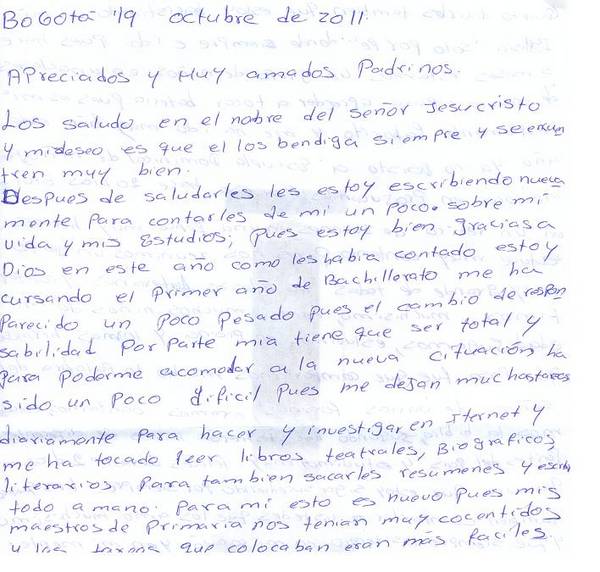 Bogotá 19 octubre de 2011
Apreciados y Muy amados Padrinos.
Los saludo en el nobre del señor Jesucristo
y mideseo es que el los bendiga siempre y se encuen
tren muy bien.
Despues de saludarles les estoy escribiendo nueva
mente para contarles de mi un poco. sobre mi
vida y mis Estudios; pues estoy bien gracias a
Dios en este año como les habia contado estoy
cursando el primer año de Bachillerato me ha
Parecido un poco pesado pues el cambio de respon
sabilidad por parte mia tiene que ser total y
para poderme acomodar a la nueva cituación ha
sido un poco dificil pues me dejan muchastareas
diariamente para hacer y investigar en Iternet y
me ha tocado leer libros teatrales, Biograficos
literarios para tambien sacarles resúmenes y escribi
todo a mano. Para mi esto es nuevo pues mis
maestros de primaria nos tenian muy cocentidos
y las tareas que colocaban eran más faciles.